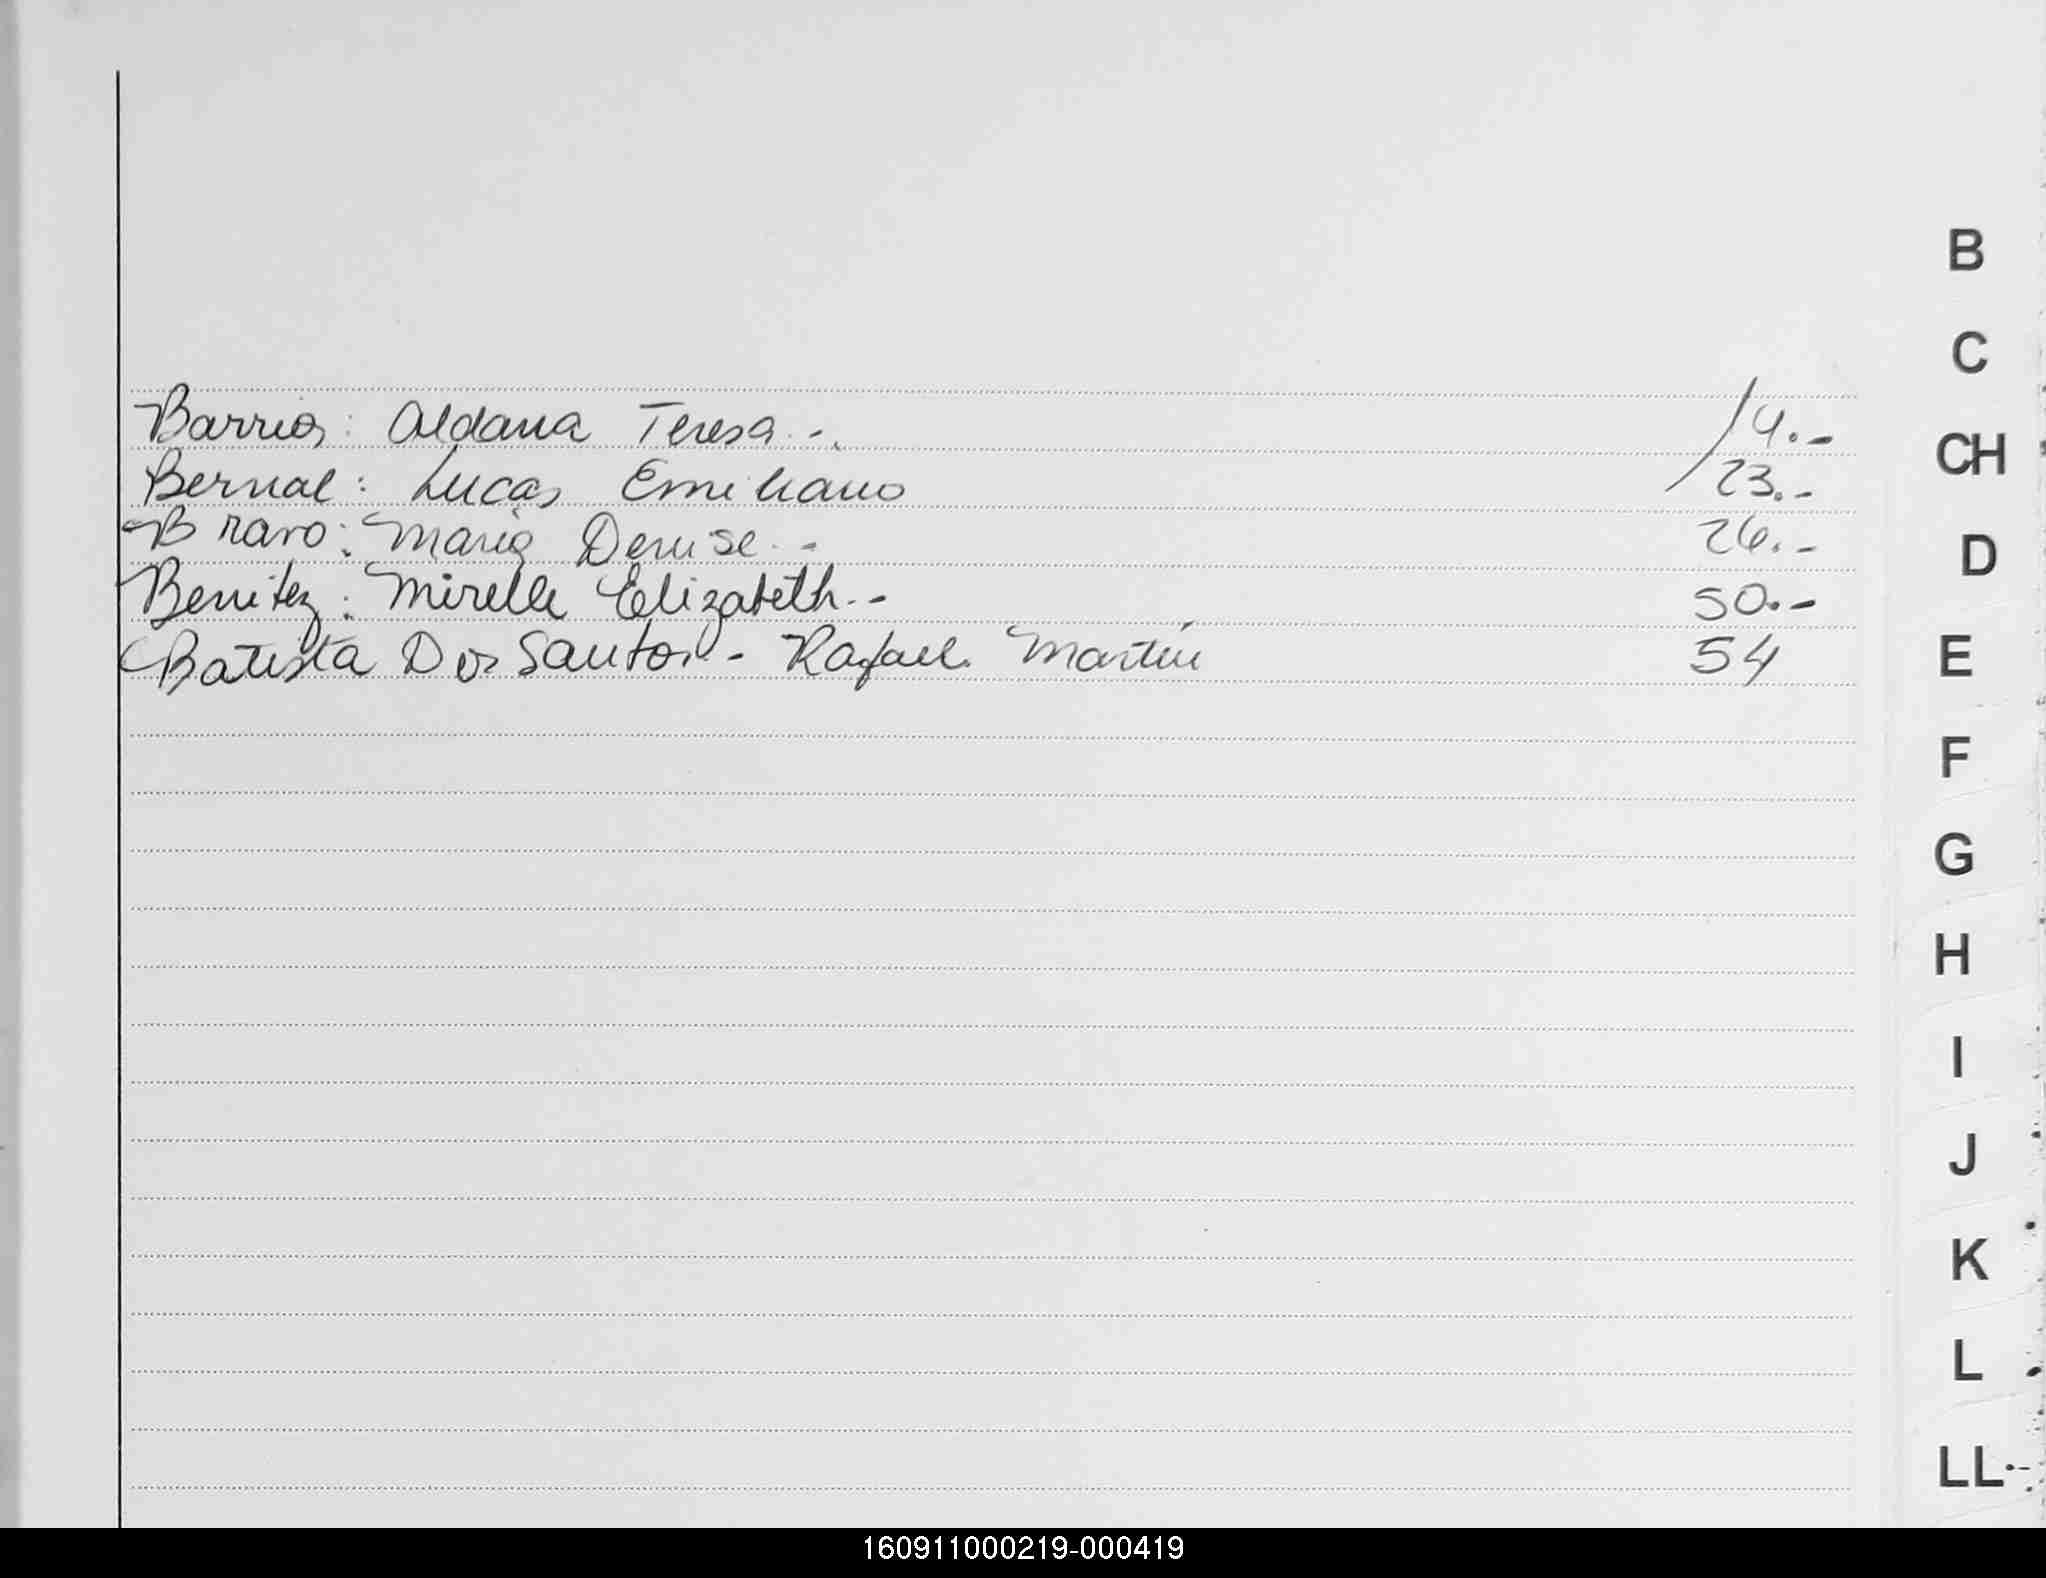 Barrios: Aldana Teresa.-. 9.-
Bernal: Lucas Emiliano 23.-
Bravo: Maria Denise.- 26.-
Benitez: Mirelle Elizabeth.- 50.-
Batista Dos Santos.- Rafael Martín 54
B
C
CH
D
E
F
G
H
I
J
K
L
LL
160911000219-000419